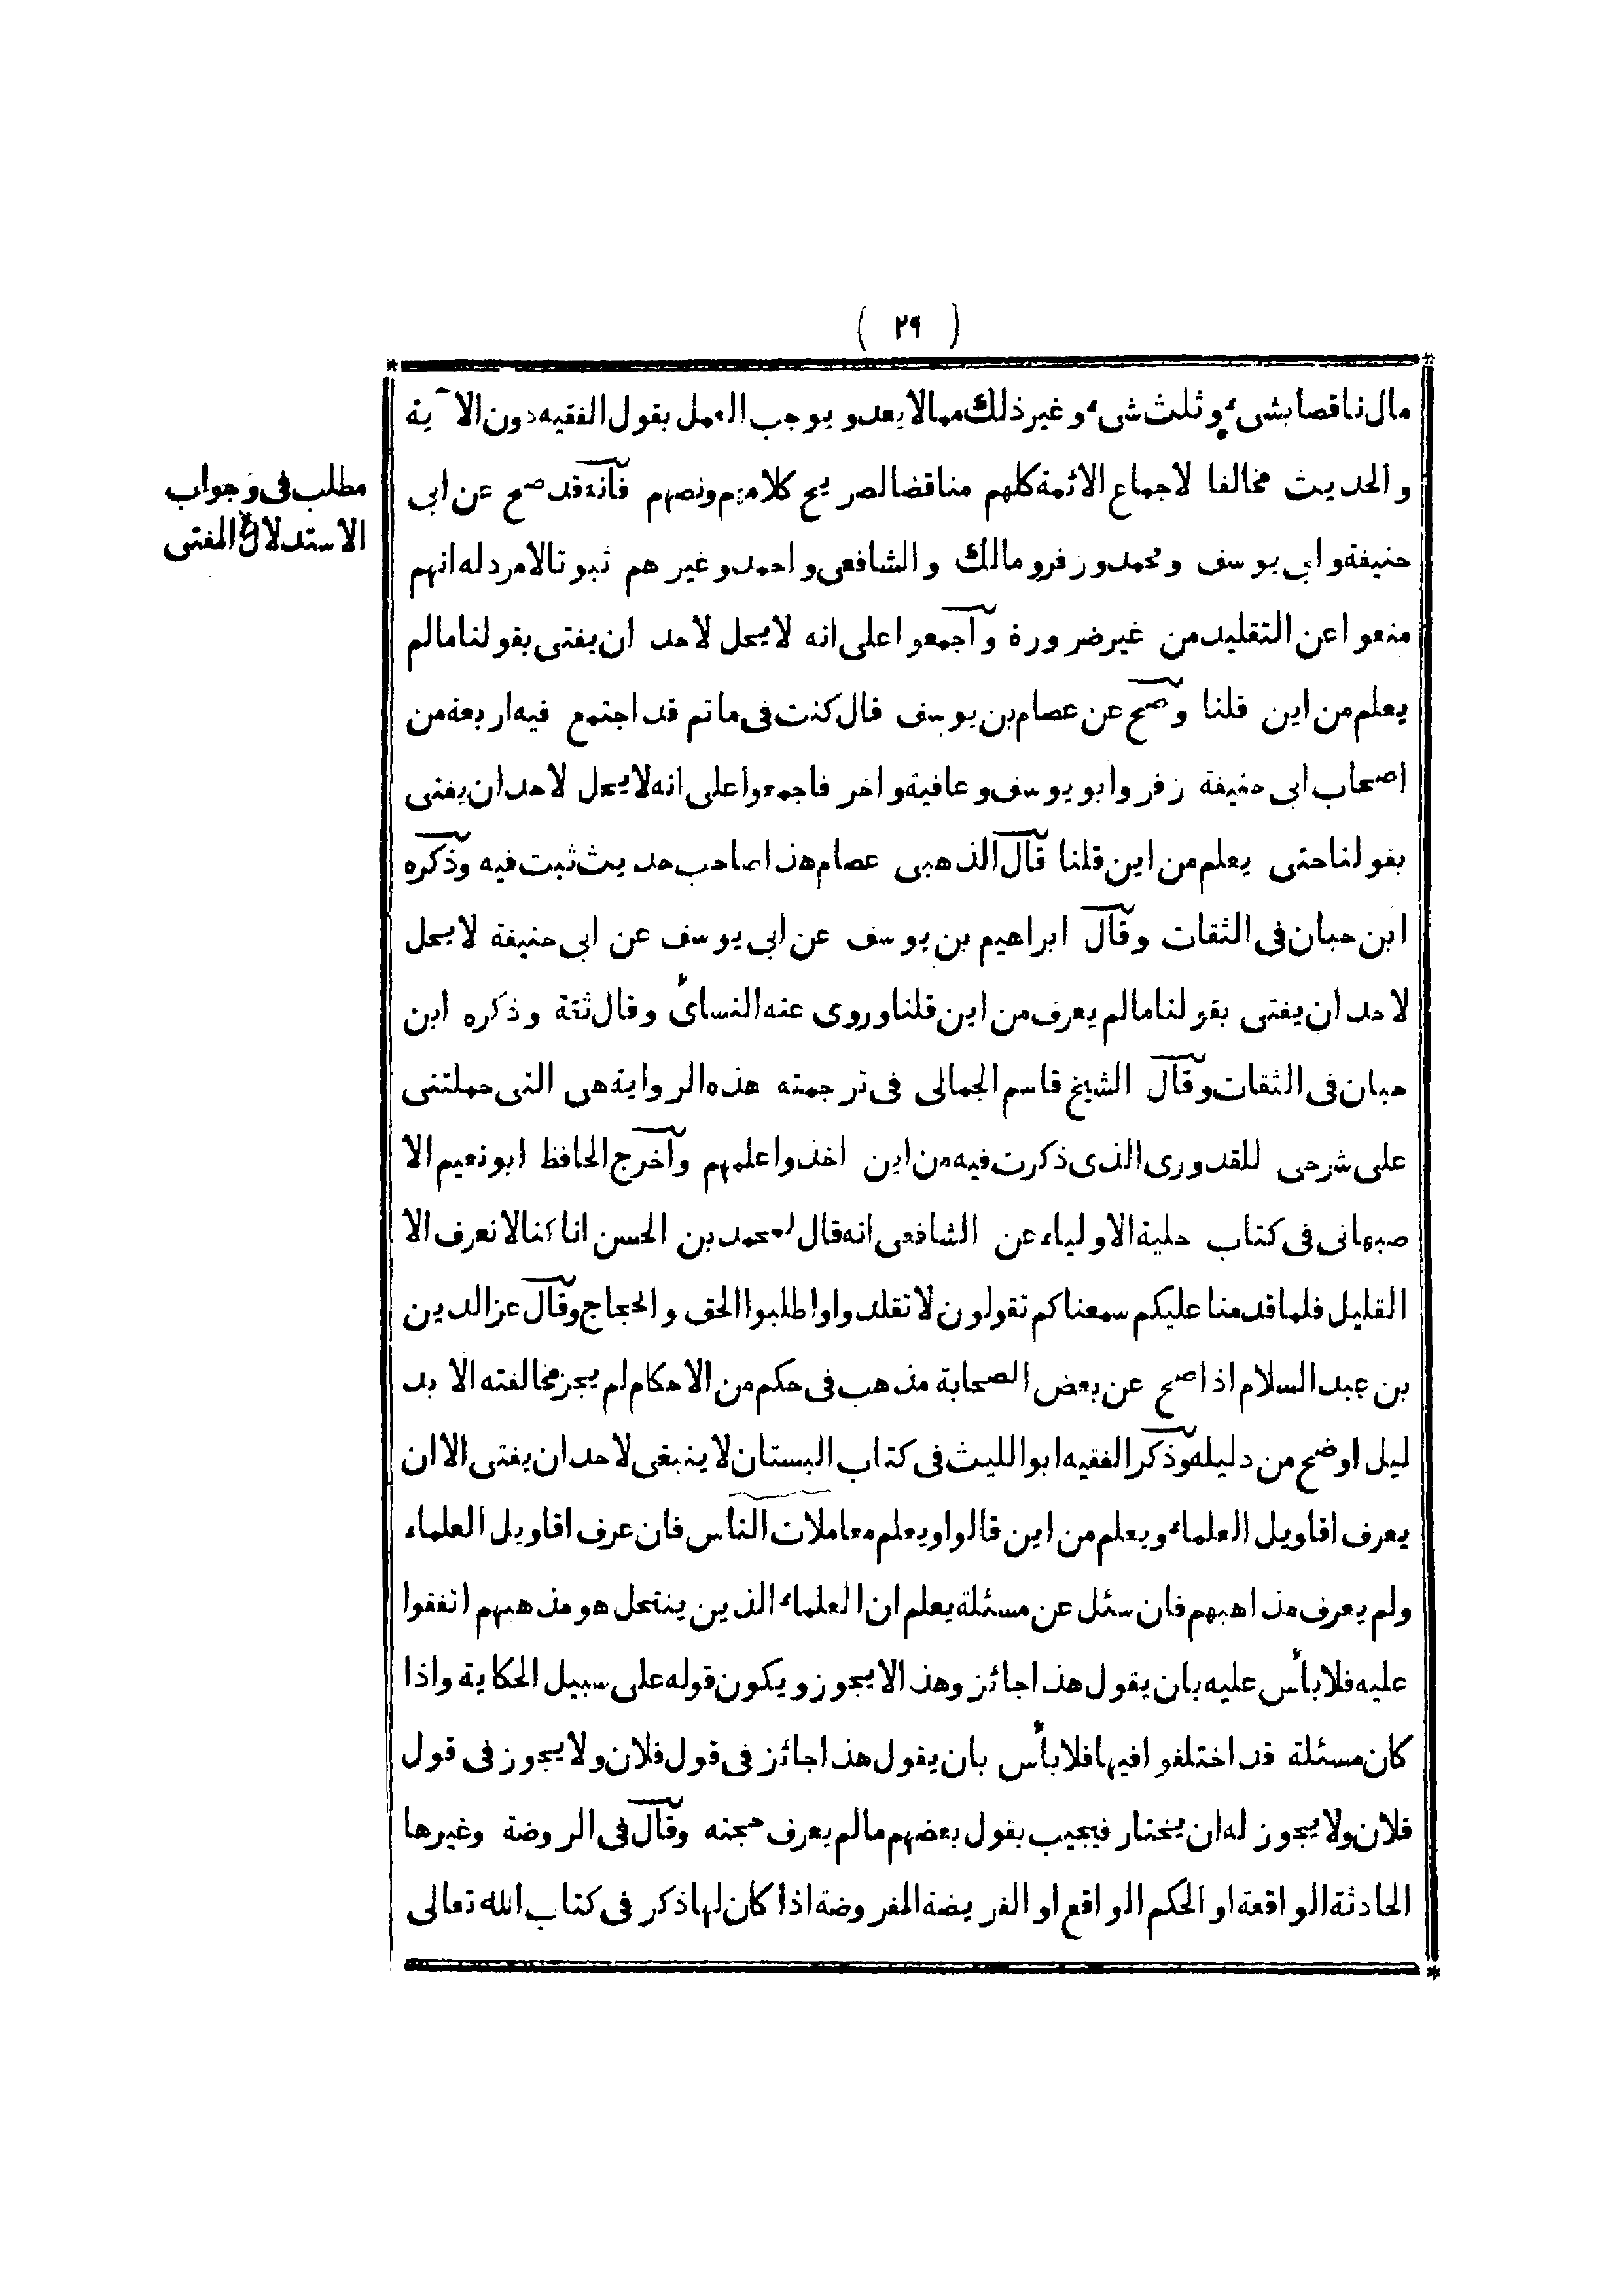 ( ٢٩ )
مال ناقصا بشیء وثلث شیء وغير ذلك مما لا يعد و يوجب العمل بقول الفقيه دون الآية
والحديث مخالفا لاجماع الائمة كلهم مناقضا لصريح كلامهم ونصهم فانه قد صح عن ابى
حنيفة وابى يوسف ومحمد وزفر ومالك والشافعى واحمد وغير هم ثبوتا لا مرد له انهم
منعوا عن التقليد من غير ضرورة واجمعوا على انه لا يحل لاحد ان يفتى بقولنا مالم
يعلم من اين قلنا وصح عن عصام بن يوسف قال كنت فى ماتم قد اجتمع فيه اربعة من
اصحاب ابى حنيفة زفر وابو يوسف وعافية واخر فاجمعوا على انه لا يحل لاحد ان يفتى
بقولنا حتى يعلم من اين قلنا قال الذهبى عصام هذا صاحب حديث ثبت فيه وذكره
ابن حبان فى الثقات وقال ابراهيم بن يوسف عن ابى يوسف عن ابى حنيفة لا يحل
لاحد ان يفتى بقولنا مالم يعرف من اين قلنا وروى عنه النسائى وقال ثقة وذكره ابن
حبان فى الثقات وقال الشيخ قاسم الجمالى فى ترجمته هذه الرواية هى التى حملتنى
على شرحى للقدورى الذى ذكرت فيه من اين اخذوا علمهم واخرج الحافظ ابو نعيم الا
صبهانى فى كتاب حلية الاولياء عن الشافعى انه قال لمحمد بن الحسن انا كنا لا نعرف الا
القليل فلما قدمنا عليكم سمعناكم تقولون لا تقلدوا واطلبوا الحق والحجاج وقال عز الدين
بن عبد السلام اذا صح عن بعض الصحابة مذهب فى حكم من الاحكام لم يجز مخالفته الا بد
ليل اوضح من دليله وذكر الفقيه ابو الليث فى كتاب البستان لا ينبغى لاحد ان يفتى الا ان
يعرف اقاويل العلماء ويعلم من اين قالوا ويعلم معاملات الناس فان عرف اقاويل العلماء
ولم يعرف مذاهبهم فان سئل عن مسئلة يعلم ان العلماء الذين ينتحل هو مذهبهم اتفقوا
عليه فلا بأس عليه بان يقول هذا جائز وهذا لا يجوز ويكون قوله على سبيل الحكاية واذا
كان مسئلة قد اختلفوا فيها فلا بأس بان يقول هذا جائز فى قول فلان ولا يجوز فى قول
فلان ولا يجوز له ان يختار فيجيب بقول بعضهم مالم يعرف حجته وقال فى الروضة وغيرها
الحادثة الواقعة او الحكم الواقع او الفريضة المفروضة اذا كان لها ذكر فى كتاب الله تعالى
مطلب فى وجواب
الاستدلال المفتى